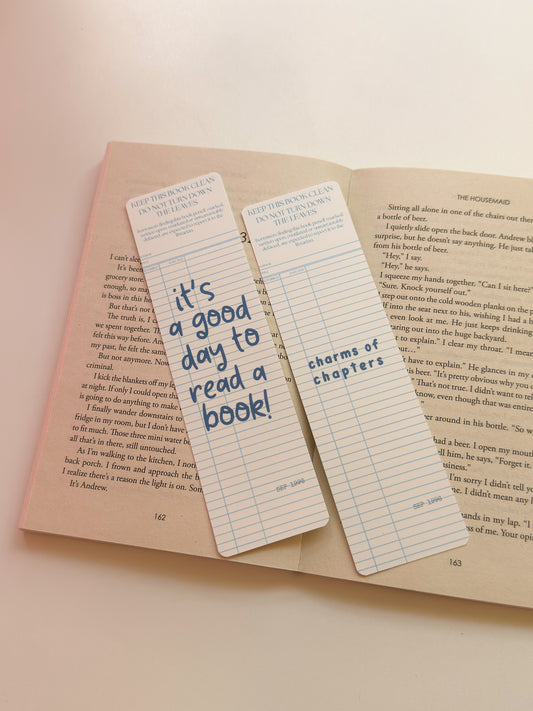 KEEP THIS BOOK CLEAN
DO NOT TURN DOWN
THE LEAVES
it's
a good
day to
read a
book!
SEP 1996
KEEP THIS BOOK CLEAN
DO NOT TURN DOWN
THE LEAVES
charms of
chapters
SEP 1996
I can't
It's been
grocery store
enough, so
is boss in this
But that's not
The truth is, I
we spent together. T
felt this way before. An
my past, he felt the same
But not anymore. Now
criminal.
I kick the blankets off my
at night. If only I could open
is going to do anything to make
I finally wander downstairs to
fridge in my room, but I don't have
to fit much. Those three mini water
all that's in there, still untouched.
As I'm walking to the kitchen, I
back porch. I frown and approach the
I realize there's a reason the light is on.
It's Andrew.
162
THE HOUSEMAID
Sitting all alone in one of the chairs out
a bottle of beer.
I quietly slide open the back door. Andrew
surprise, but he doesn't say anything. He just
from his bottle of beer.
"Hey," I say.
"Hey," he says.
I squeeze my hands together. "Can I sit here?"
"Sure. Knock yourself out."
step out onto the cold wooden planks on the
into the seat next to his, wishing I had a
even look at me. He just keeps drinking
out into the huge backyard.
to explain." I clear my throat. "I
out…"
have to explain." He glances my
his beer. "It's pretty obvious why you
"That's not true. I didn't want to
know, even though that was
around in his bottle. "So
had a beer. I open my
tell him, he says, "Forget it.
business."
I'm sorry I didn't tell
I didn't mean any
hands in my lap. "I
of me. Your
163